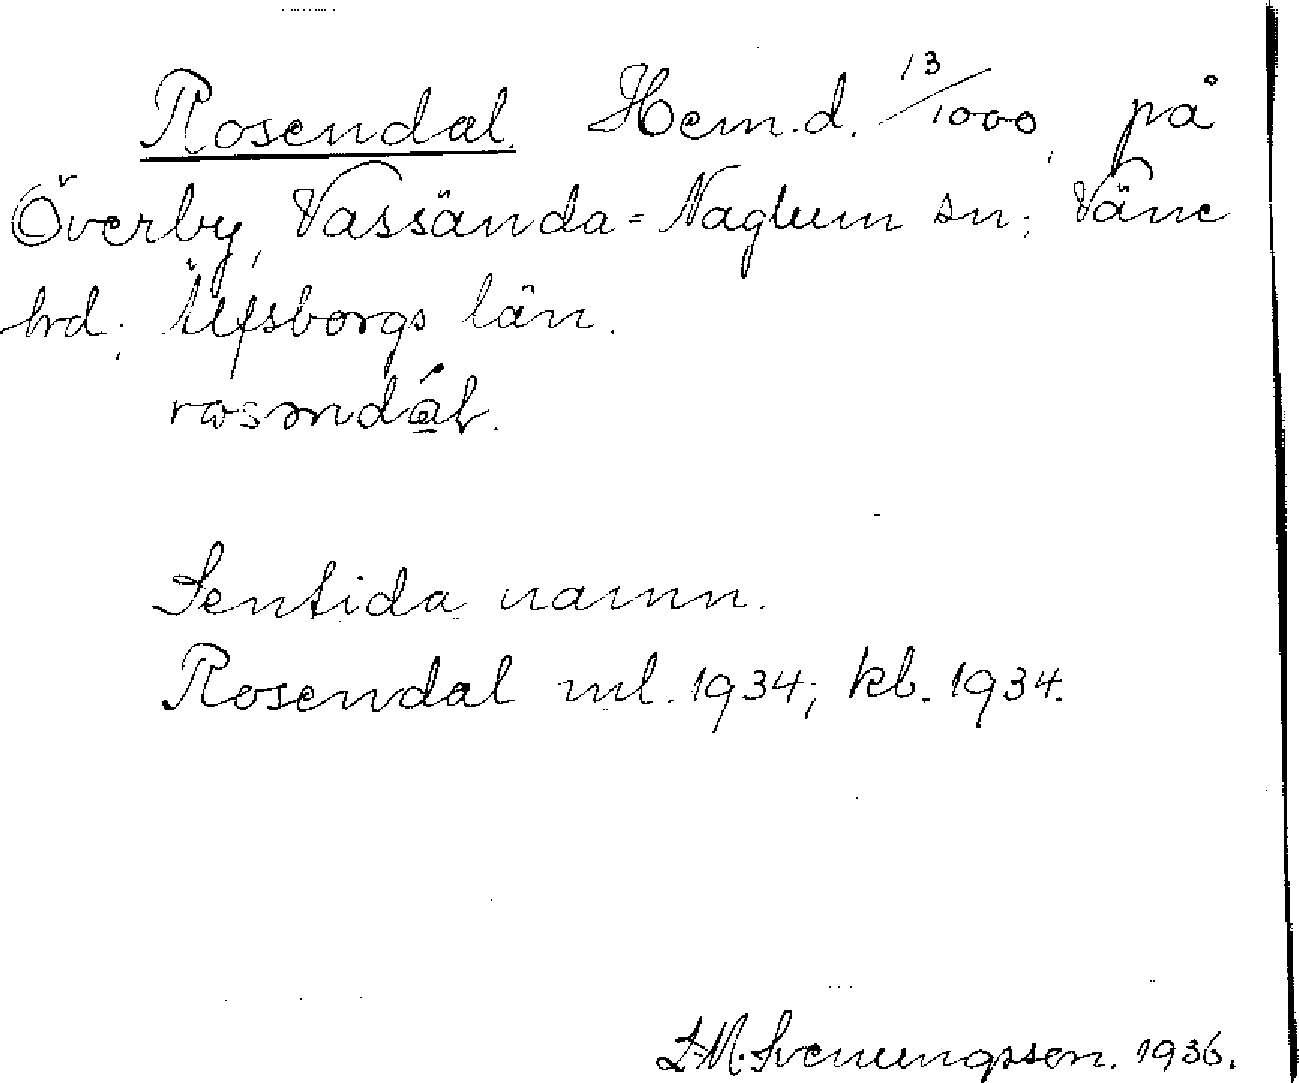 Rosendal. Hem.d. 13/1000, på
Överby, Vassända-Naglum sn; Väne
hrd; Älfsborgs län.
Sentida namn.
Rosendal ml. 1934; kb. 1934.
L.M. Svenungsson. 1936.